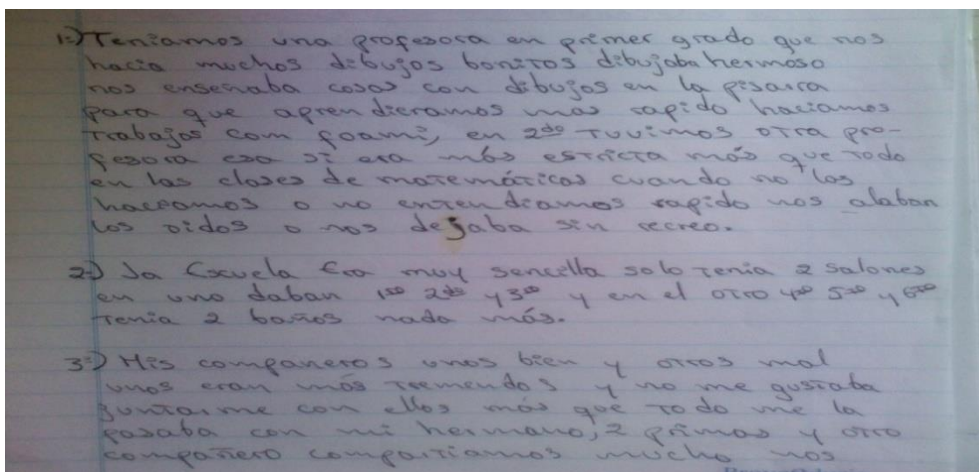 1:) Teniamos una profesora en primer grado que nos
hacia muchos dibujos bonitos dibujaba hermoso
nos enseñaba cosas con dibujos en la pisarra
para que aprendieramos mas rapido haciamos
trabajos com foami, en 2do tuvimos otra pro-
fesora esa si era más estricta más que todo
en las clases de matemáticas cuando no las
haciamos o no entendiamos rapido nos alaban
los oidos o nos dejaba sin recreo.
2:) La Escuela Era muy sencilla solo tenia 2 salones
en uno daban 1ro 2do y 3ro y en el otro 4to 5to y 6to
tenia 2 baños nada más.
3:) Mis compañeros unos bien y otros mal
unos eran más tremendos y no me gustaba
juntarme con ellos más que todo me la
pasaba con mi hermano, 2 primas y otro
compañero compartiamos mucho nos